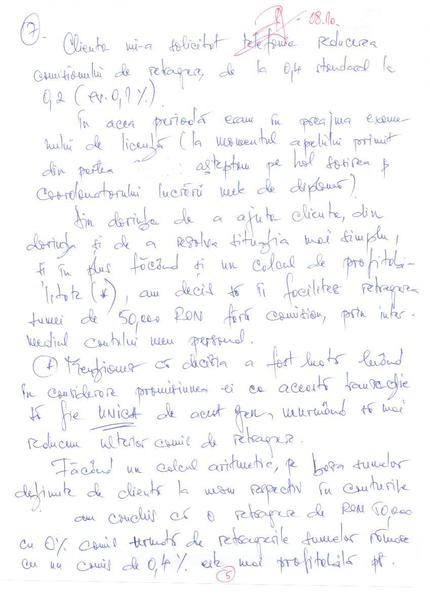 7. 08.10.
Clienta mi-a solicitat telefonic reducerea
comisionului de retragere, de la 0,4 standard la
0,2 (ev. 0,1 %).
În acea perioadă eram în preajma exame-
nului de licență (la momentul apelului primit
din partea așteptam pe hol sosirea
coordonatorului lucrării mele de diplomă)
Din dorința de a ajuta clienta, din
dorința și de a rezolva situația mai simplu,
și în plus făcând și un calcul de profitabi-
litate (*), am decis să îi facilitez retragerea
sumei de 50,000 RON fără comision, prin inter-
mediul contului meu personal.
Menționez că decizia a fost luată luând
în considerare promisiunea ei ca această tranzacție
să fie UNICĂ de acest gen, urmând să mai
reducem ulterior comis de retragere.
Făcând un calcul aritmetic, pe baza sumelor
deținute de clientă la mom respectiv în conturile
am conchis că o retragere de RON 50,000
cu 0% comis urmată de retragerile sumelor rămase
cu un comis de 0,4 % este mai profitabilă pt.
5